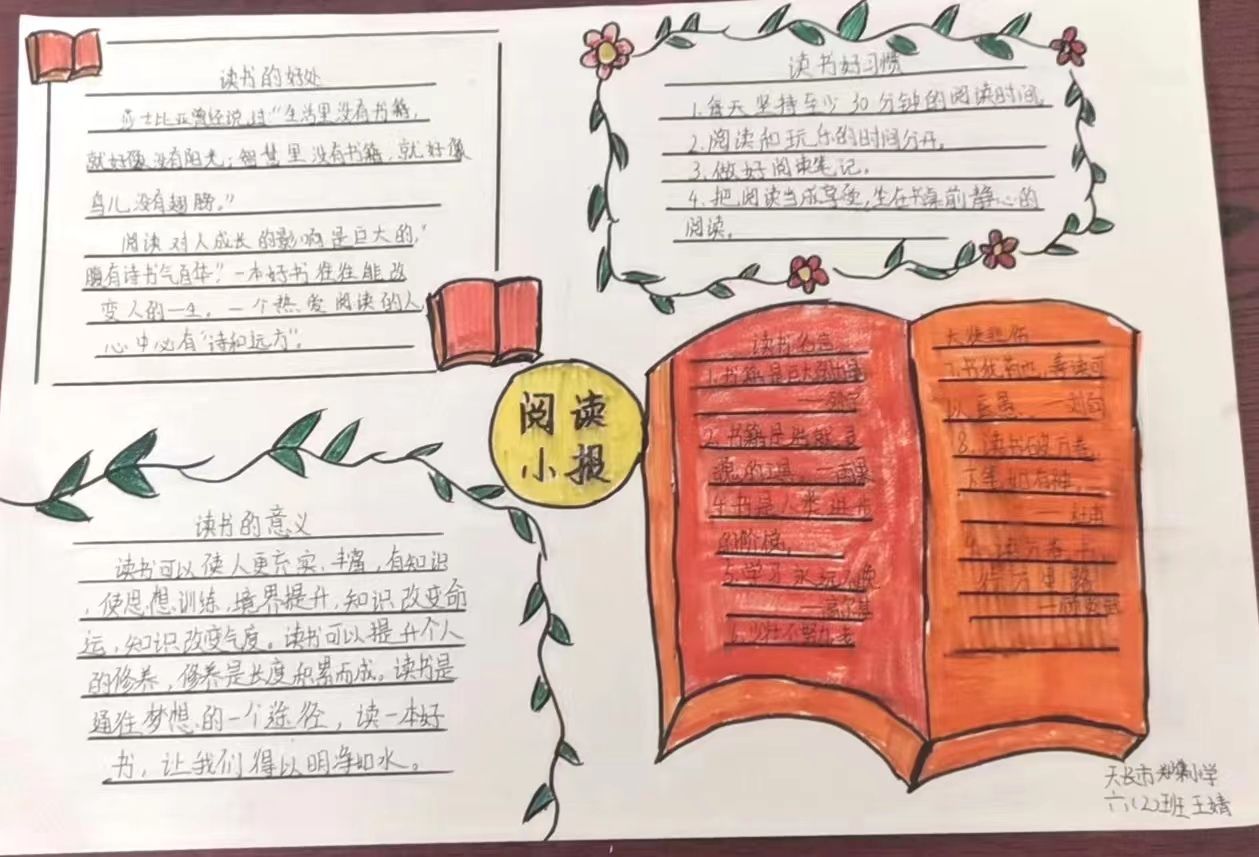 读书的好处
莎士比亚曾经说过“生活里没有书籍,
就好像没有阳光;智慧里没有书籍,就好像
鸟儿没有翅膀。”
阅读对人成长的影响是巨大的,“
腹有诗书气自华”一本好书往往能改
变人的一生,一个热爱阅读的人,
心中必有“诗和远方”。
读书好习惯
1.每天坚持至少30分钟的阅读时间。
2.阅读和玩乐的时间分开。
3.做好阅读笔记。
4.把阅读当成享受,坐在书桌前静心的
阅读。
阅读
小报
读书的意义
读书可以使人更充实、丰富,有知识
,使思想训练,境界提升,知识改变命
运,知识改变气度。读书可以提升个人
的修养,修养是长度积累而成。读书是
通往梦想的一个途径,读一本好
书,让我们得以明净如水。
读书名言
1.书籍是巨大的力量
2.书籍是
的工具。——雨果
书是人类进步
的阶梯。
5.学习永远不晚
——高尔基
6.少壮不努力,老
大徒悲伤
7.书犹药也,善读可
以医愚。——刘向
8.读书破万卷,
下笔如有神。
——杜甫
9.读万卷书,
行万里路
天长市郑集小学
六(2)班 王婧